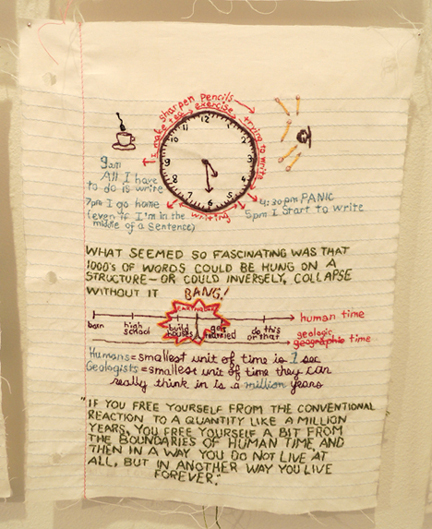 sharpen pencils
make tea exercise
trying to write
12
11
1
10
2
9
3
8
4
7
5
6
writing
9am
All I have
to do is write
7pm I go home
(even if I'm in the
middle of a sentence)
4:30pm PANIC
5pm I start to write
WHAT SEEMED SO FASCINATING WAS THAT
1000'S OF WORDS COULD BE HUNG ON A
STRUCTURE - OR COULD INVERSELY, COLLAPSE
WITHOUT IT
BANG!
EARTHQUAKE
human time
born
high
school
build
houses
get
married
do this
or that
geologic,
geographic time
Humans = smallest unit of time is 1 sec
Geologists = smallest unit of time they can
really think in is a million years
"IF YOU FREE YOURSELF FROM THE CONVENTIONAL
REACTION TO A QUANTITY LIKE A MILLION
YEARS, YOU FREE YOURSELF A BIT FROM
THE BOUNDARIES OF HUMAN TIME AND
THEN IN A WAY YOU DO NOT LIVE AT
ALL, BUT IN ANOTHER WAY YOU LIVE
FOREVER."